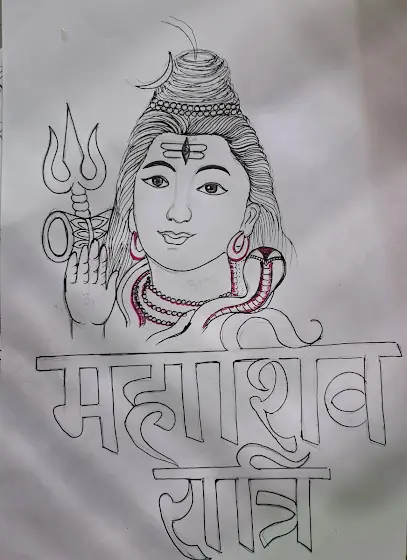 महाशिव
रात्रि